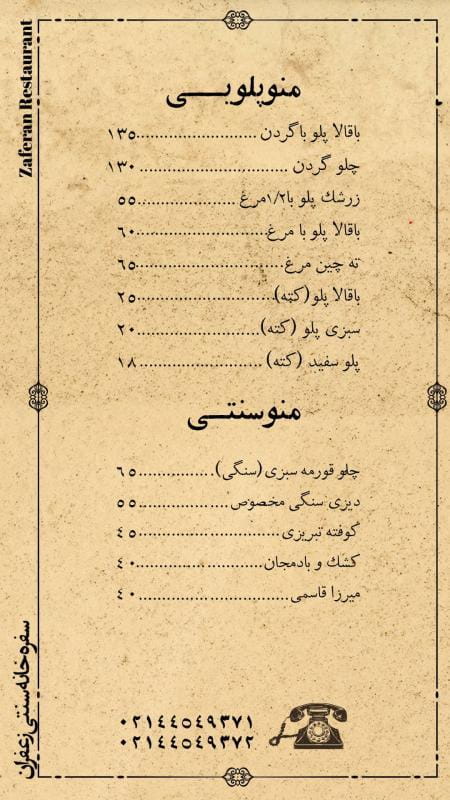 Zaferan Restaurant
منو پلویی
باقالا پلو با گردن ........................ ۱۳۵
چلو گردن ............................. ۱۳۰
زرشك پلو با ۱/۲ مرغ .................... ۵۵
باقالا پلو با مرغ .......................... ٦۰
ته چین مرغ ............................. ٦۵
باقالا پلو (کته) ........................... ۲۵
سبزی پلو (کته) ......................... ۲۰
پلو سفید (کته) ........................ ۱۸
منو سنتی
چلو قورمه سبزی (سنگی) ............... ٦۵
دیزی سنگی مخصوص .................. ۵۵
کوفته تبریزی ............................ ٤۵
کشك و بادمجان ......................... ٤۰
میرزا قاسمی .............................. ٤۰
۰۲۱٤٤۵٤۹۳۷۱
۰۲۱٤٤۵٤۹۳۷۲
سفره خانه سنتی زعفران